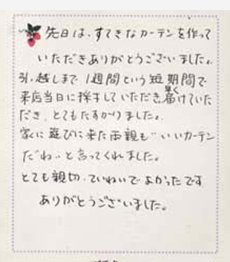 先日は、すてきなカーテンを作って
いただきありがとうございました。
引っ越しまで1週間という短期間で
来店当日に採寸していただき早く届けていた
だき、とてもたすかりました。
家に遊びに来た両親も"いいカーテン
だね"と言ってくれました。
とても親切、ていねいでよかったです
ありがとうございました。